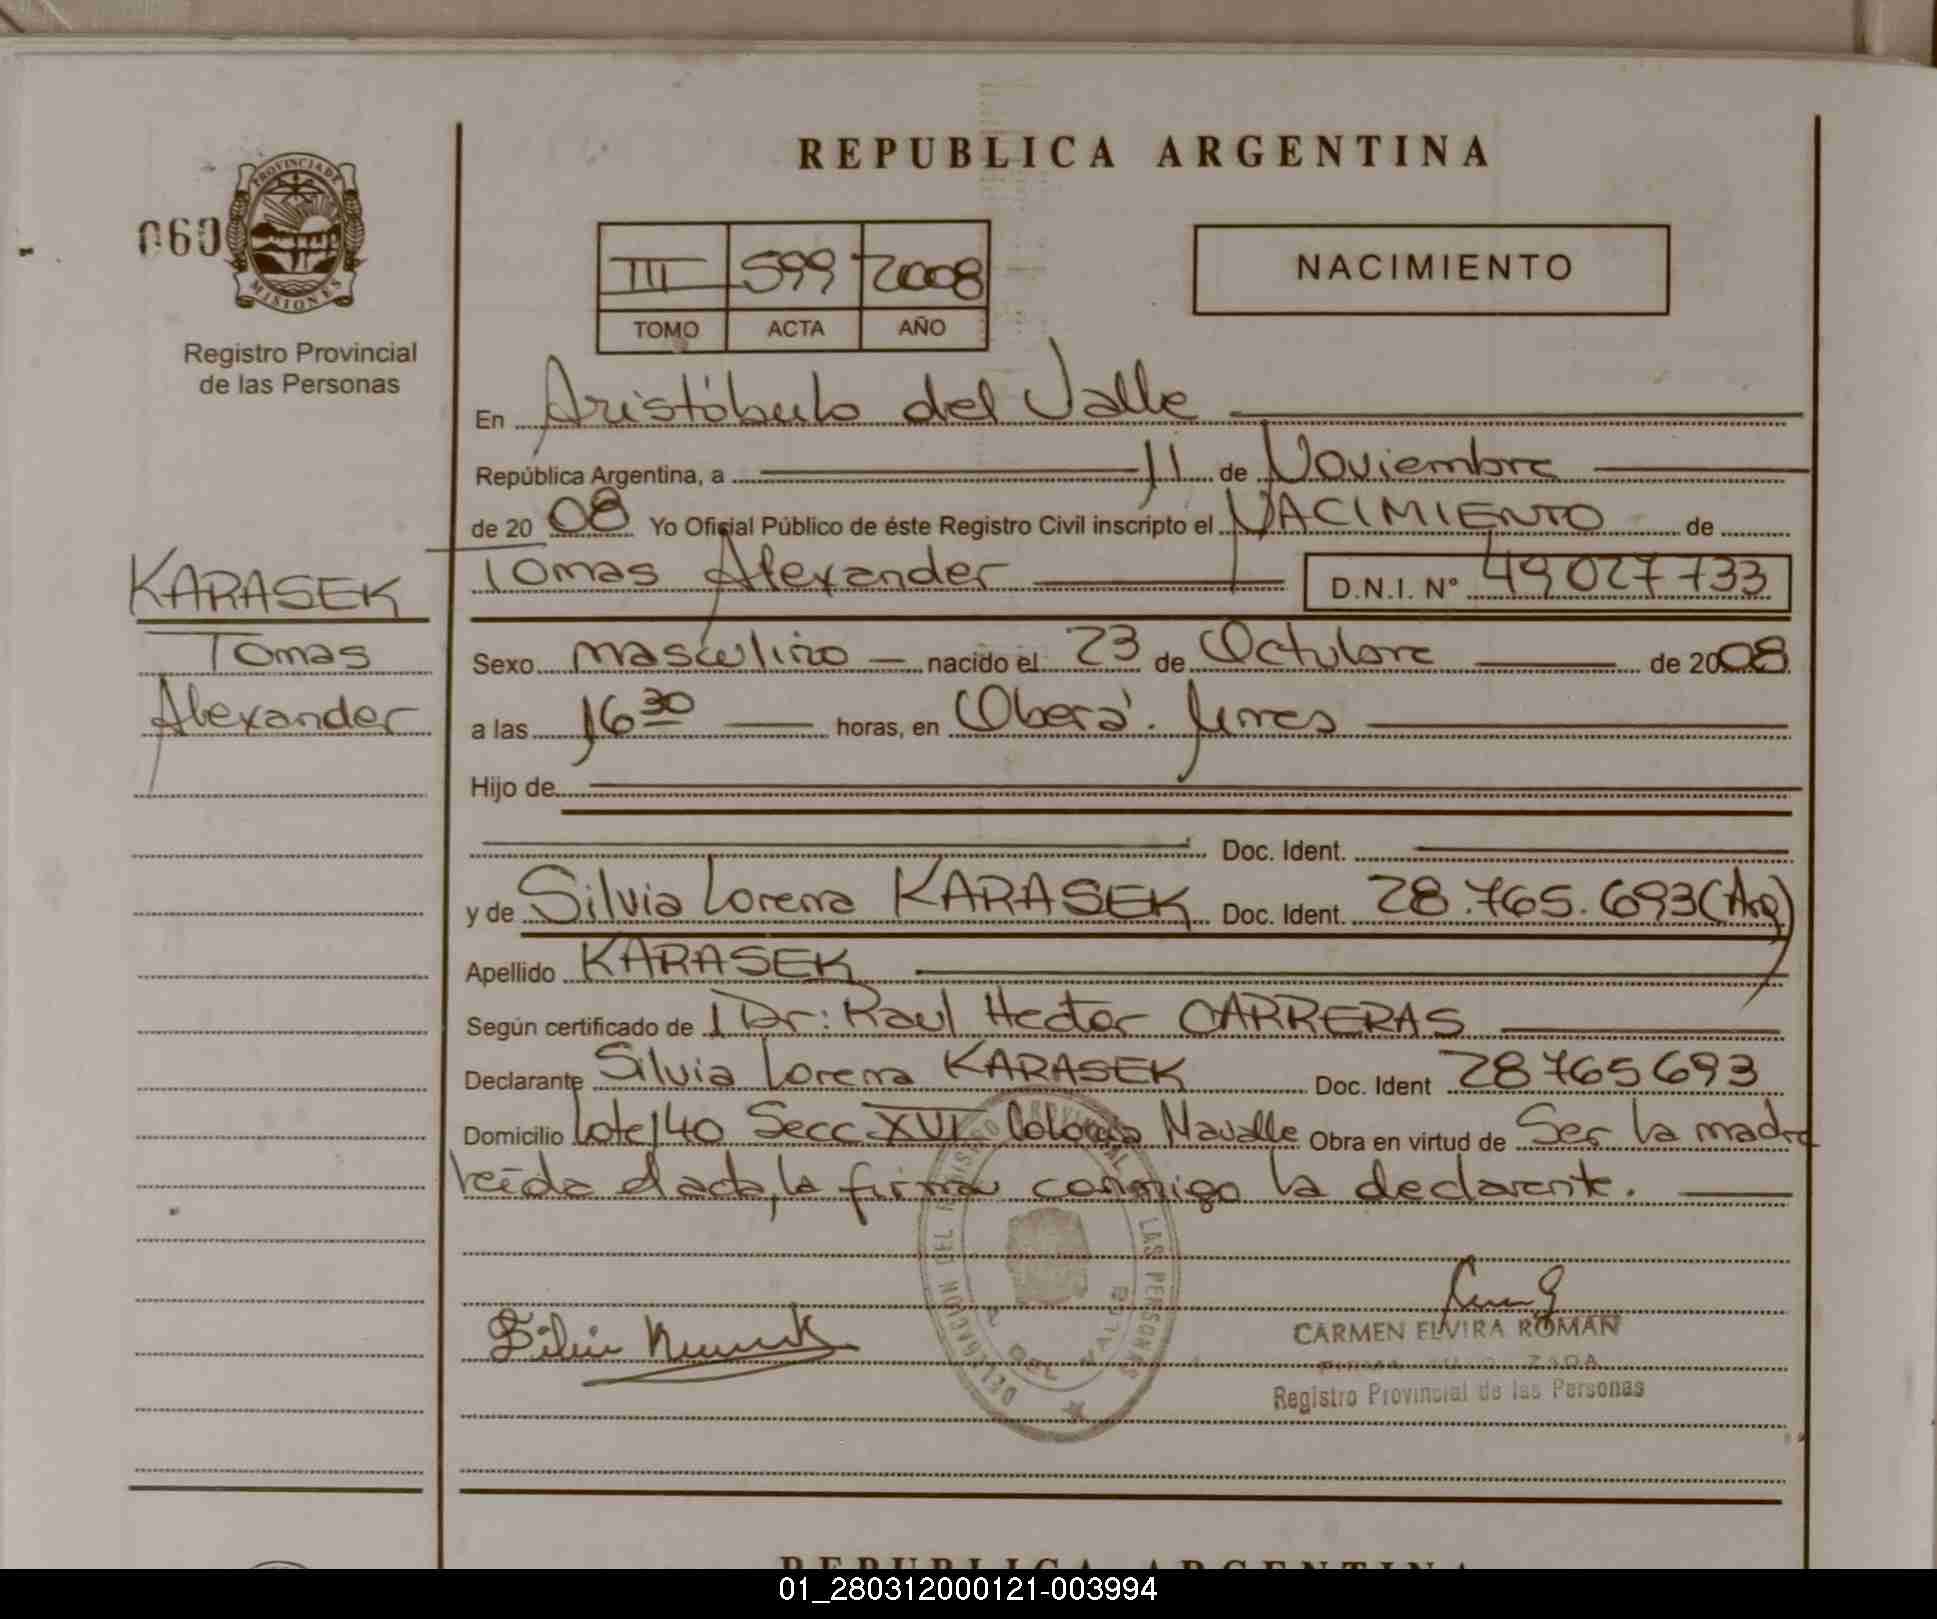 REPUBLICA ARGENTINA
PROVINCIA DE MISIONES
060
III 599 2008
TOMO ACTA AÑO
NACIMIENTO
Registro Provincial
de las Personas
En Aristóbulo del Valle
República Argentina, a 11 de Noviembre
de 20 08 Yo Oficial Público de éste Registro Civil inscripto el NACIMIENTO de
KARASEK
Tomas
Alexander
Tomas Alexander D.N.I. N° 49 027 733
Sexo masculino nacido el 23 de Octubre de 2008
a las 16 30 horas, en Oberá.
Hijo de
Doc. Ident.
y de Silvia Lorena KARASEK Doc. Ident. 28.765.693 (Arg)
Apellido KARASEK
Según certificado de Dr: Raul Hector CARRERAS
Declarante Silvia Lorena KARASEK Doc. Ident 28 765 693
Domicilio Lote 140 Secc XVI Colonia Obra en virtud de Ser la madre
leída el acta, la firma conmigo la declarante.
DELEGACION DEL REGISTRO PROVINCIAL LAS PERSONAS
DEL VALLE
CARMEN ELVIRA ROMAN
Registro Provincial de las Personas
REPUBLICA ARGENTINA
01_280312000121-003994